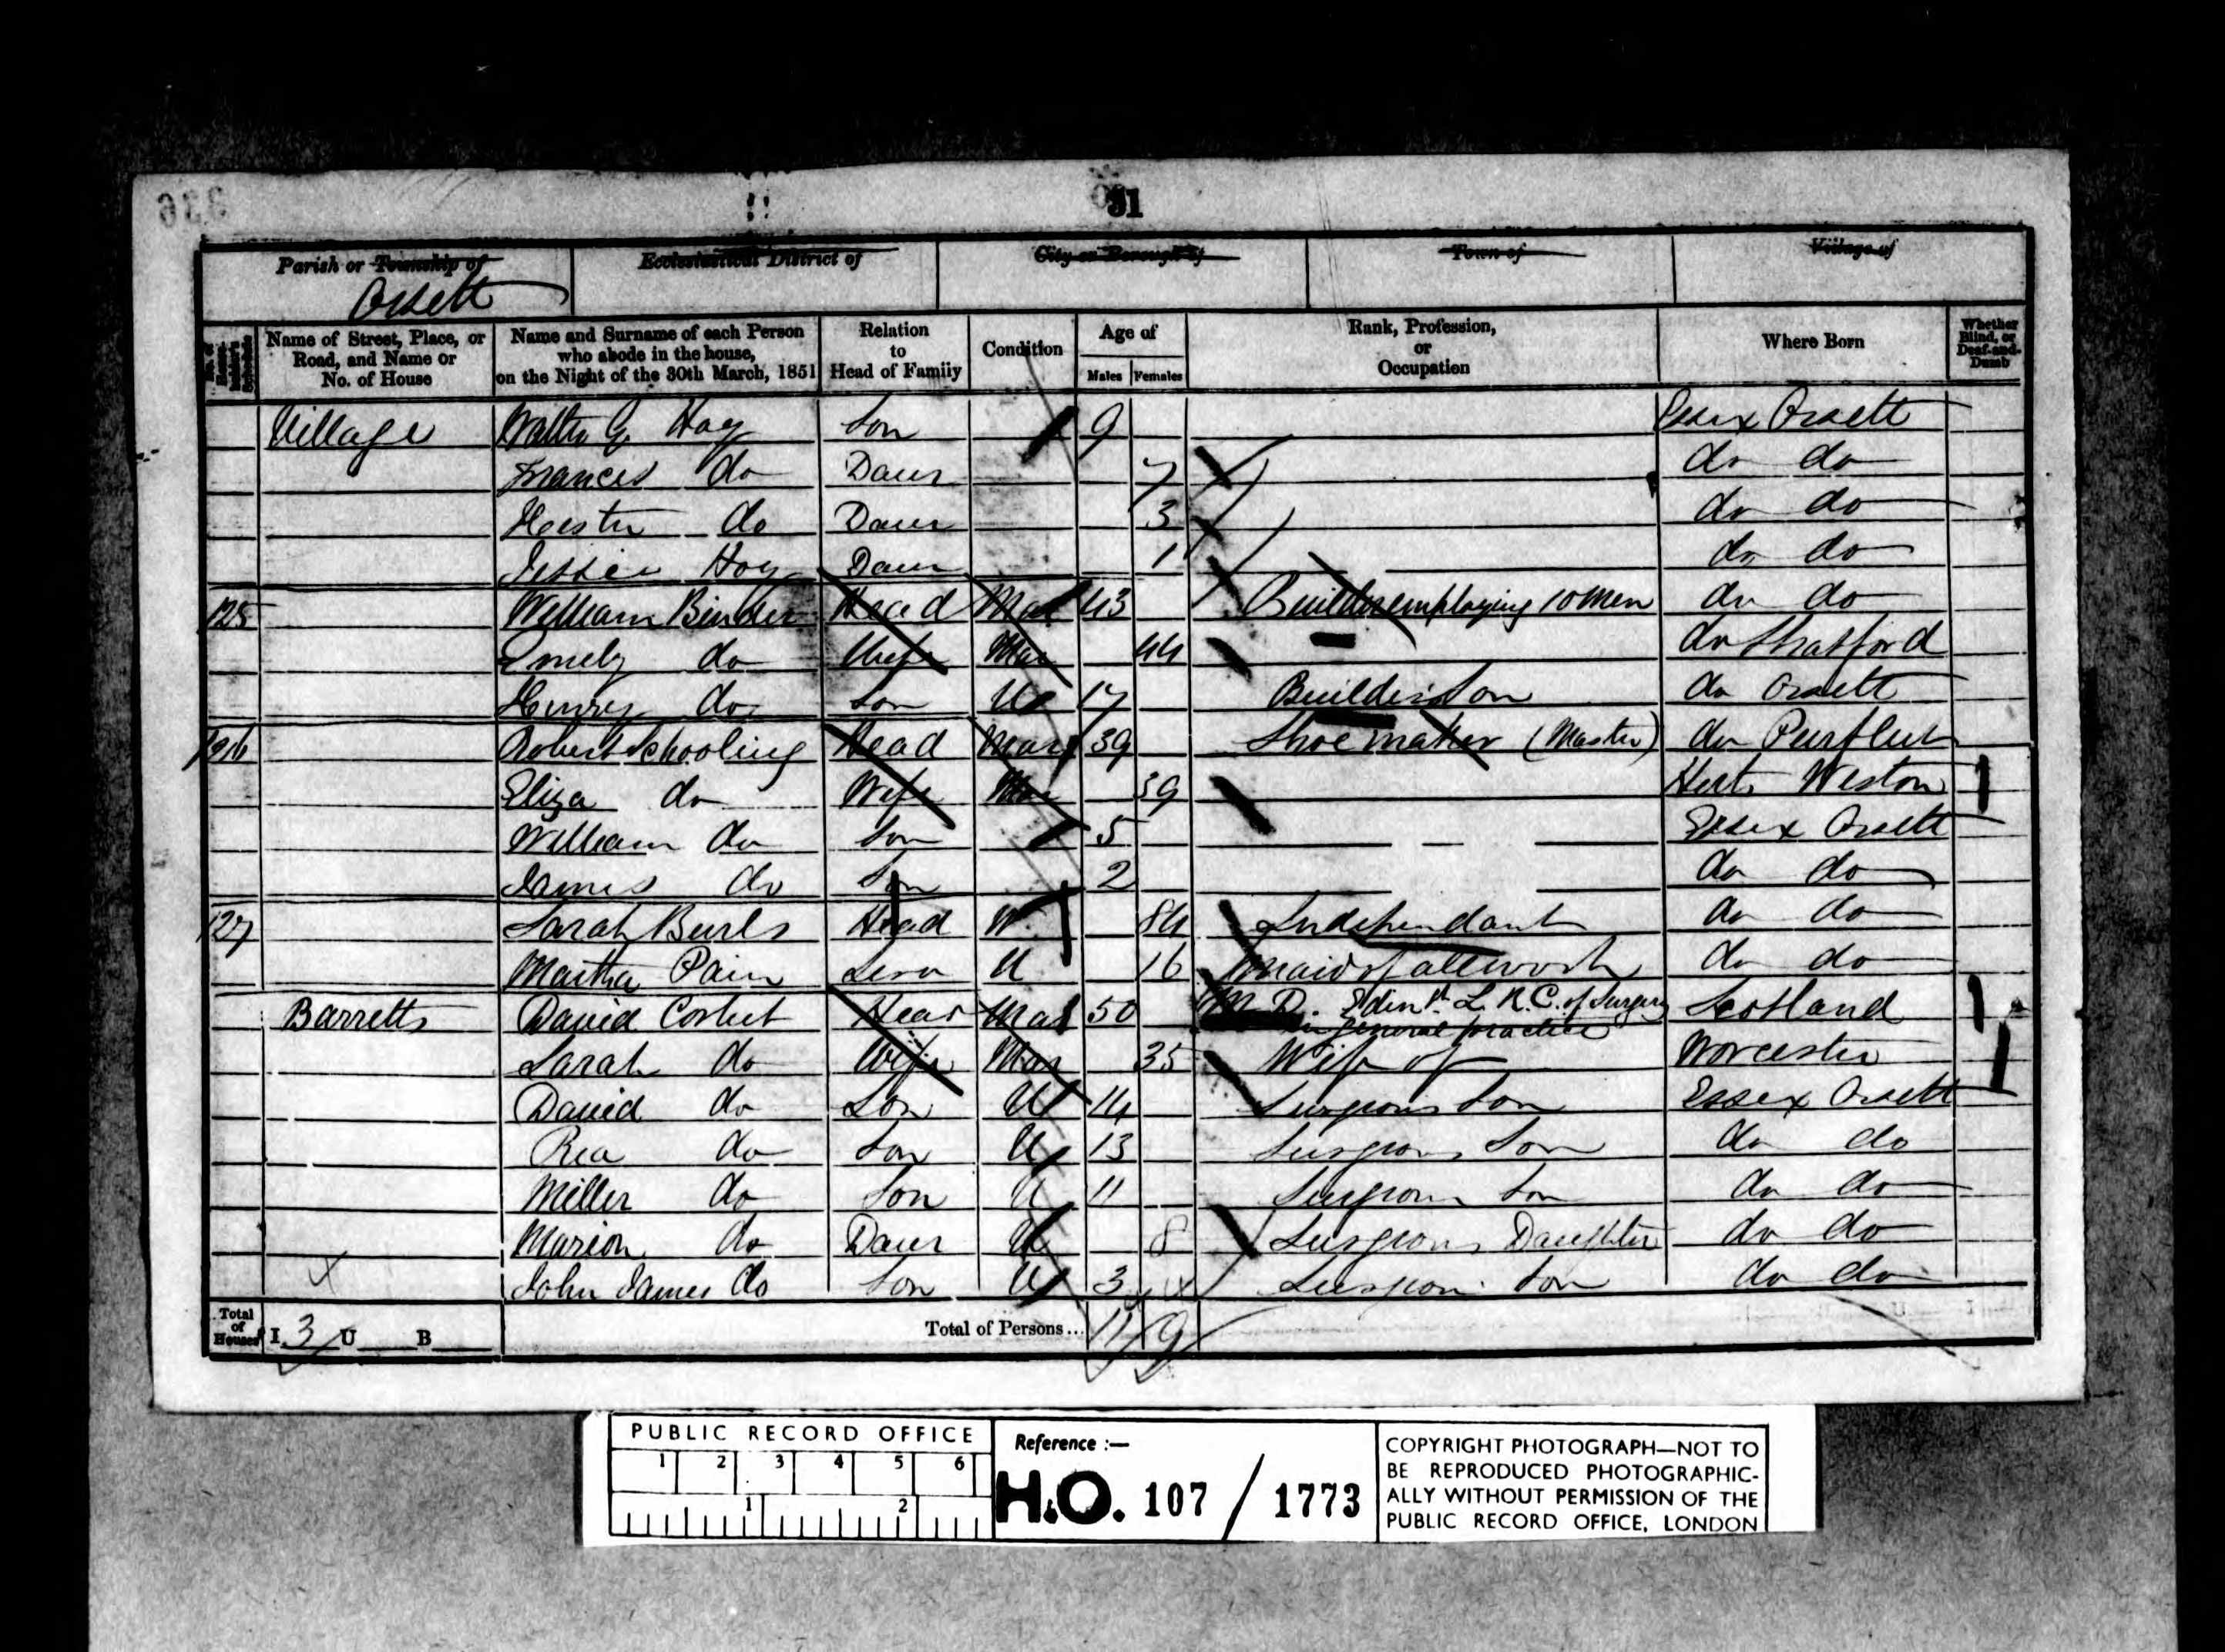 31
Parish or Township of Orsett
Ecclesiastical District of
City or Borough of
Town of
Village of
No. of House-holder's Schedule
Name of Street, Place, or Road, and Name or No. of House
Name and Surname of each Person who abode in the house, on the Night of the 30th March, 1851
Relation to Head of Family
Condition
Age of
Males Females
Rank, Profession, or Occupation
Where Born
Whether Blind, or Deaf-and-Dumb
Village Walter G Hay Son 9 Essex Orsett
Frances do Daur 7 do do
Hester do Daur 3 do do
Jessie Hay Daur 1 do do
125 William Binder Head Mar 43 Builder employing 10 Men do do
Emely do Wife Mar 44 do Stratford
Henry do Son U 17 Builders Son do Orsett
126 Robert Schooling Head Mar 39 Shoemaker (Master) do Purfleet
Eliza do Wife Mar 39 Herts Weston
William do Son 5 Essex Orsett
James do Son 2 do do
127 Sarah Burls Head W 84 Independant do do
Martha Pain Serv U 16 Maid of all work do do
Barretts David Corbet Head Mar 50 M.D. Edinh. L.R.C. of Surgery in general practice Scotland
Sarah do Wife Mar 35 Wife of Worcester
David do Son U 14 Surgeons Son Essex Orsett
Rea do Son U 13 Surgeons Son do do
Miller do Son U 11 Surgeons Son do do
Marion do Daur U 8 Surgeons Daughter do do
John James do Son U 3 Surgeons Son do do
Total of Houses I 3 U B Total of Persons... 11 9
PUBLIC RECORD OFFICE
1 2 3 4 5 6
1 2
Reference :—
H.O. 107 / 1773
COPYRIGHT PHOTOGRAPH—NOT TO
BE REPRODUCED PHOTOGRAPHIC-
ALLY WITHOUT PERMISSION OF THE
PUBLIC RECORD OFFICE, LONDON